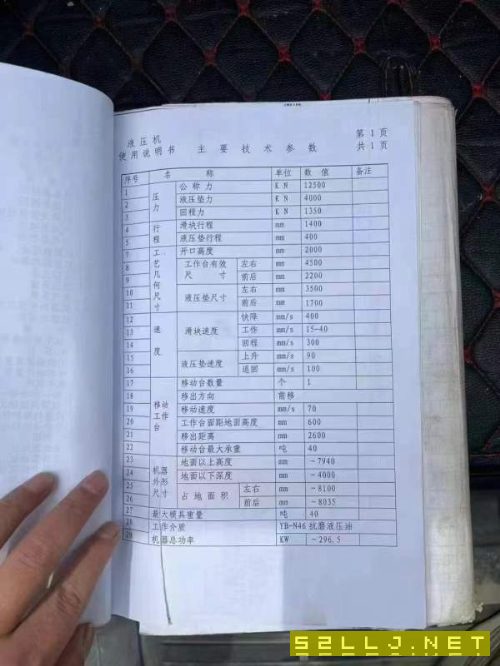 液压机
使用说明书 主要技术参数 第1页
共1页
序号 名称 单位 数值 备注
1 压力 公称力 KN 12500
2 液压垫力 KN 4000
3 回程力 KN 1350
4 行程 滑块行程 mm 1400
5 液压垫行程 mm 400
6 工艺几何尺寸 开口高度 mm 2000
7 工作台有效尺寸 左右 mm 4500
8 前后 mm 2200
10 液压垫尺寸 左右 mm 3500
11 前后 mm 1700
12 速度 滑块速度 快降 mm/s 400
13 工作 mm/s 15-40
14 回程 mm/s 300
15 液压垫速度 上升 mm/s 90
16 退回 mm/s 100
17 移动工作台 移动台数量 个 1
18 移出方向 前移
19 移动速度 mm/s 70
20 工作台面距地面高度 mm 600
21 移出距离 mm 2600
22 移动台最大承重 吨 40
23 机器外形尺寸 地面以上高度 mm ~7940
24 地面以下深度 mm ~4000
25 占地面积 左右 mm ~8100
26 前后 mm ~8035
27 最大模具重量 吨 40
28 工作介质 YB-N46抗磨液压油
29 机器总功率 KW ~296.5
52LLJ.NET
52LLJ.NET